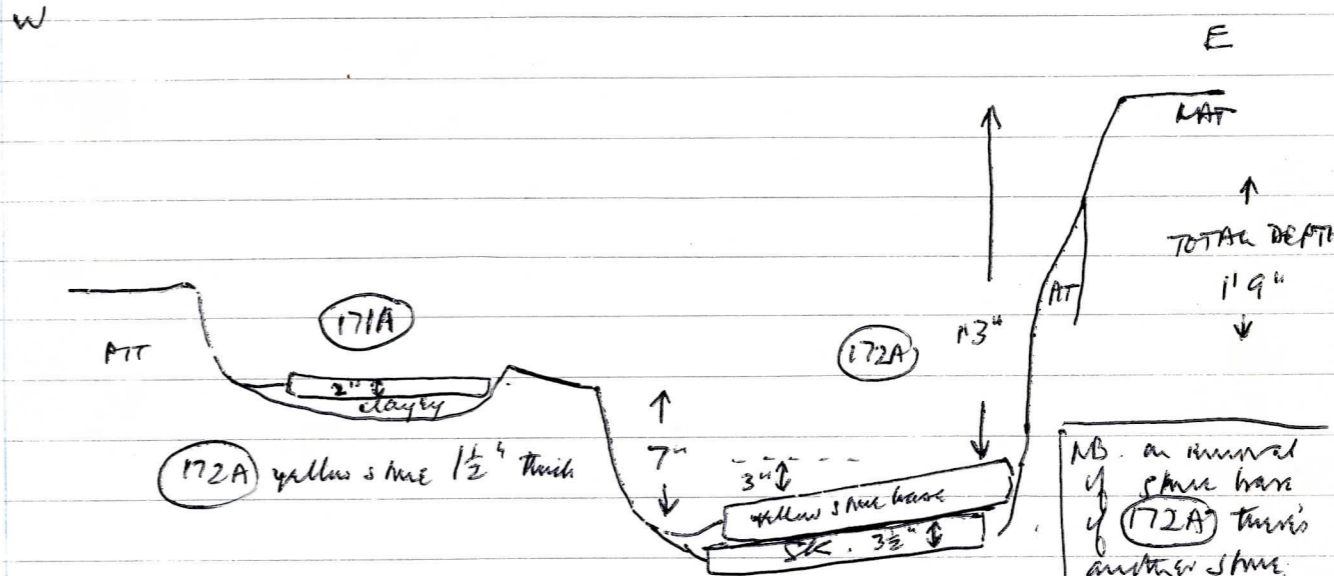 W
E
NAT
TOTAL DEPTH
1' 9"
171A
172A
1'3"
2"
clayey
7"
3"
172A yellow stone 1½" thick
yellow stone base
SK. 3½"
NB. on removal
of stone base
of 172A there's
another stone.